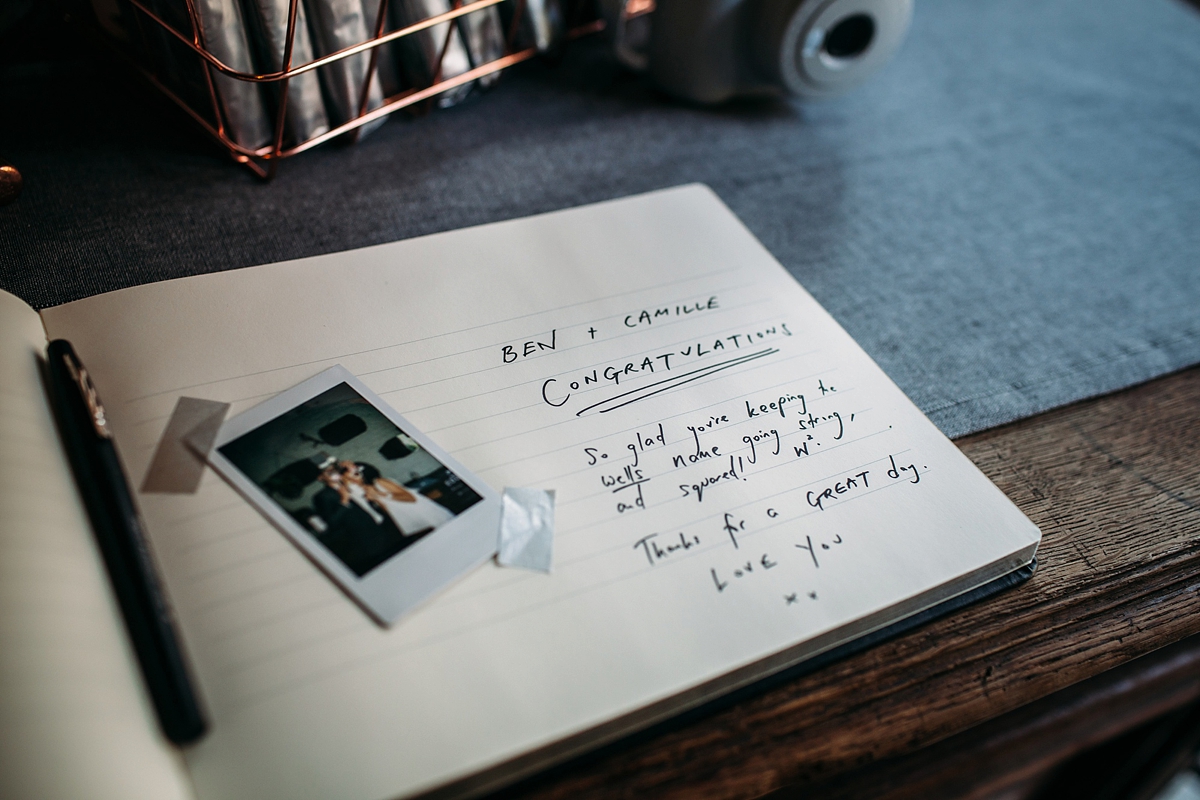 BEN + CAMILLE
CONGRATULATIONS
So glad you're keeping the
wells name going strong,
and squared! W².
Thanks for a GREAT day.
LOVE YOU
xx